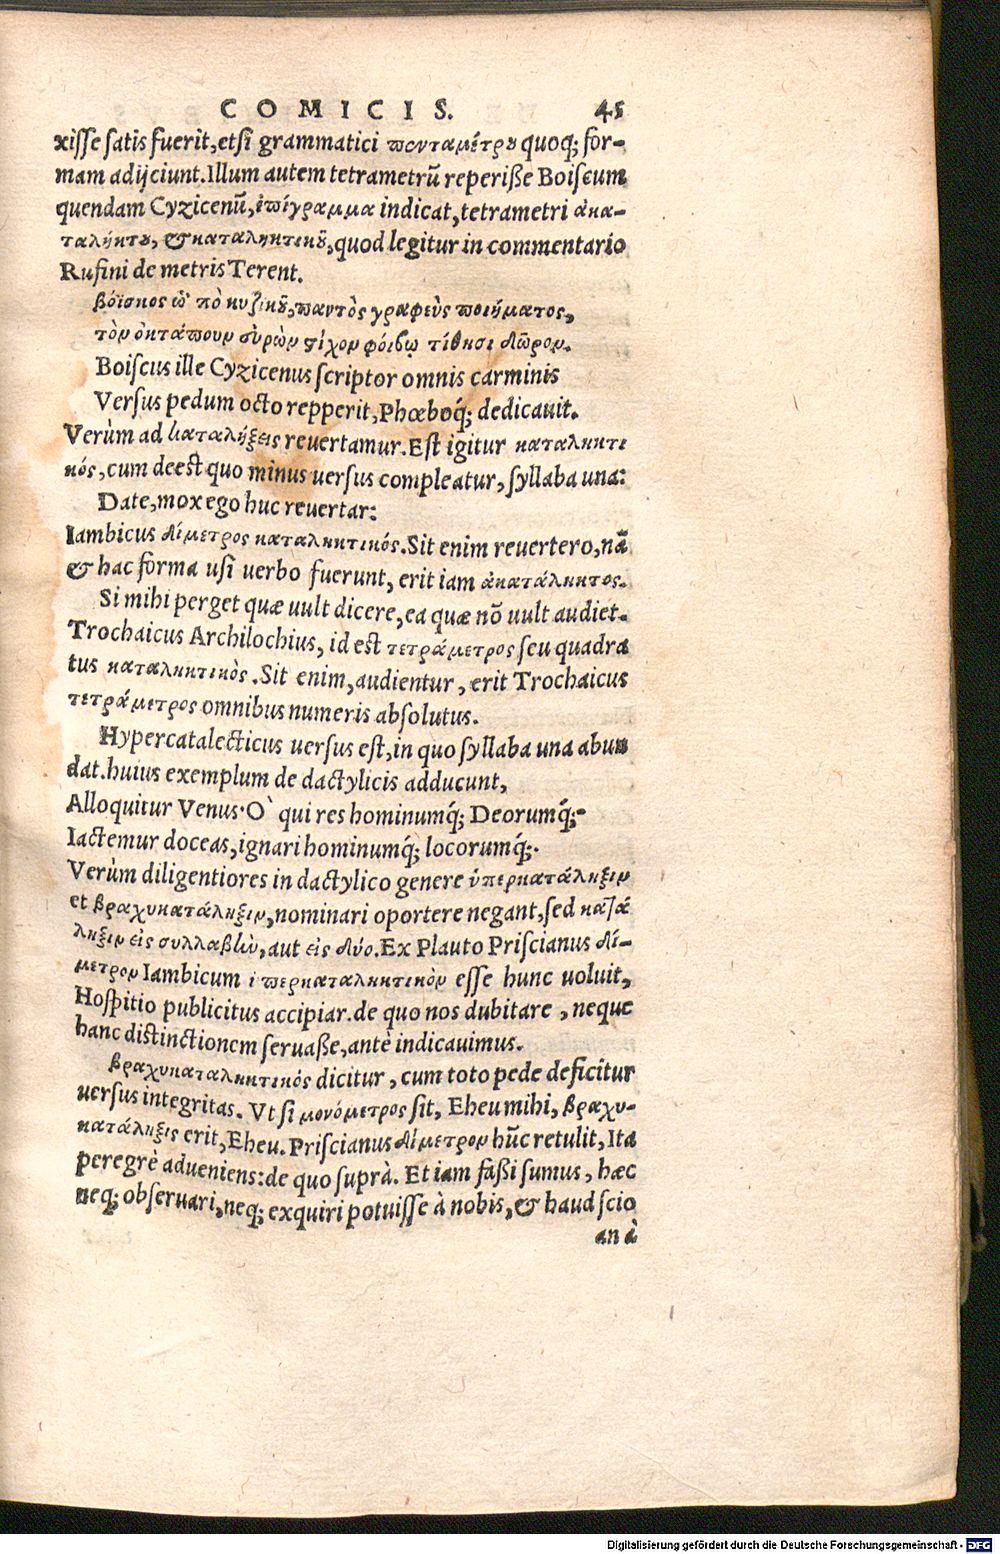 COMICIS. 45
xisse satis fuerit, etsi grammatici πενταμέτρου quoq; for-
mam adijciunt. Illum autem tetrametrũ reperisse Boiscum
quendam Cyzicenũ, ἐπίγραμμα indicat, tetrametri ἀκα-
ταλήκτου, & καταληκτικοῦ, quod legitur in commentario
Rufini de metris Terent.
βόϊσκος ὡ πὸ κυζικοῦ, παντὸς γραφεὺς ποιήματος,
τὸν ὀκτάπουν εὑρὼν στίχον φοίβῳ τίθησι δῶρον.
Boiscus ille Cyzicenus scriptor omnis carminis
Versus pedum octo repperit, Phœboq́; dedicauit.
Verùm ad καταλήξεις reuertamur. Est igitur καταληκτι
κός, cum deest quo minus uersus compleatur, syllaba una:
Date, mox ego huc reuertar:
Iambicus δίμετρος καταληκτικός. Sit enim reuertero, nã
& hac forma usi uerbo fuerunt, erit iam ἀκατάληκτος.
Si mihi perget quæ uult dicere, ea quæ nõ uult audiet.
Trochaicus Archilochius, id est τετράμετρος seu quadra
tus καταληκτικὸς. Sit enim, audientur, erit Trochaicus
τετράμετρος omnibus numeris absolutus.
Hypercatalecticus uersus est, in quo syllaba una abun
dat. huius exemplum de dactylicis adducunt,
Alloquitur Venus. O` qui res hominumq́; Deorumq́;-
Iactemur doceas, ignari hominumq́; locorumq́;.
Verùm diligentiores in dactylico genere ὑπερκατάληξιν
et βραχυκατάληξιν, nominari oportere negant, sed κατά
ληξιν εἰς συλλαβὼ, aut εἰς δύο. Ex Plauto Priscianus δί-
μετρον Iambicum ὑπερκαταληκτικὸν esse hunc uoluit,
Hospitio publicitus accipiar. de quo nos dubitare, neque
hanc distinctionem seruasse, antè indicauimus.
βραχυκαταληκτικός dicitur, cum toto pede deficitur
uersus integritas. Vt si μονόμετρος sit, Eheu mihi, βραχυ-
κατάληξις erit, Eheu. Priscianus δίμετρον hũc retulit, Ita
peregrè adueniens: de quo suprà. Et iam fassi sumus, hæc
neq; obseruari, neq; exquiri potuisse à nobis, & haud scio
an à
Digitalisierung gefördert durch die Deutsche Forschungsgemeinschaft - DFG